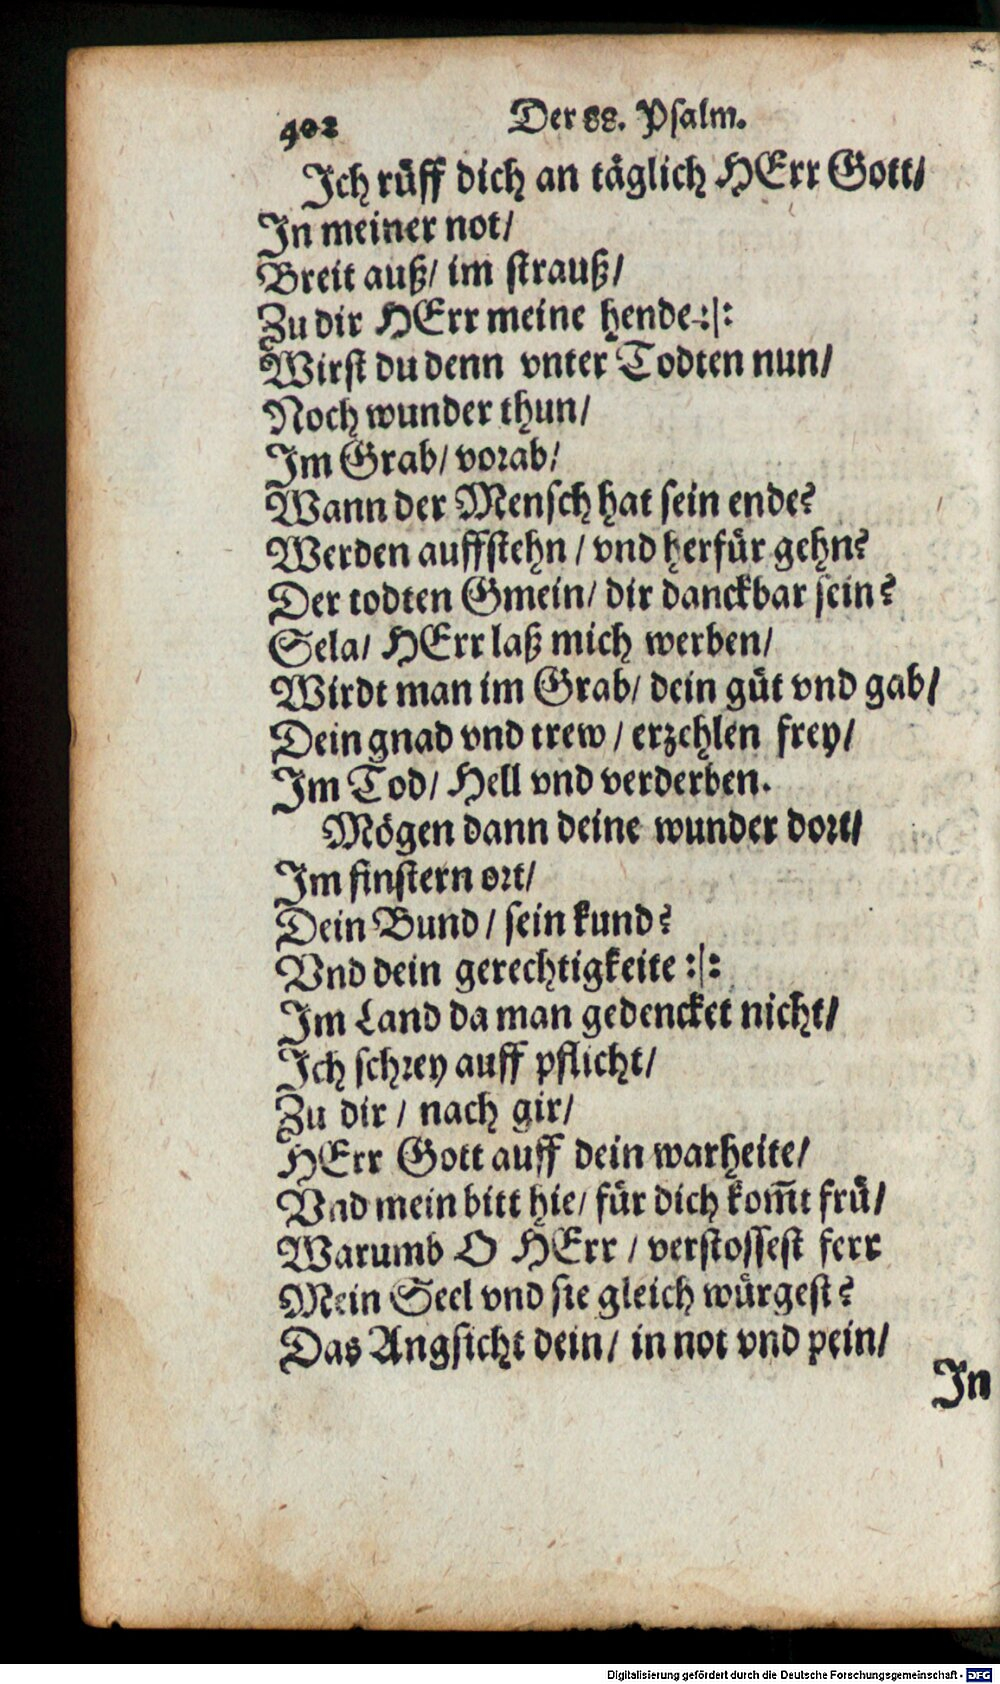 402 Der 88. Psalm.
Ich rüff dich an täglich HErr Gott/
In meiner not/
Breit auß/ im strauß/
Zu dir HErr meine hende :|:
Wirst du denn vnter Todten nun/
Noch wunder thun/
Im Grab/ vorab/
Wann der Mensch hat sein ende?
Werden auffstehn / vnd herfür gehn?
Der todten Gmein/ dir danckbar sein?
Sela/ HErr laß mich werben/
Wirdt man im Grab/ dein güt vnd gab/
Dein gnad vnd trew / erzehlen frey/
Im Tod/ Hell vnd verderben.
Mögen dann deine wunder dort/
Im finstern ort/
Dein Bund / sein kund?
Vnd dein gerechtigkeite :|:
Im Land da man gedencket nicht/
Ich schrey auff pflicht/
Zu dir / nach gir/
HErr Gott auff dein warheite/
Vnd mein bitt hie/ für dich kom̄t frü/
Warumb O HErr / verstossest ferr
Mein Seel vnd sie gleich würgest?
Das Angsicht dein/ in not vnd pein/
In
Digitalisierung gefördert durch die Deutsche Forschungsgemeinschaft - DFG